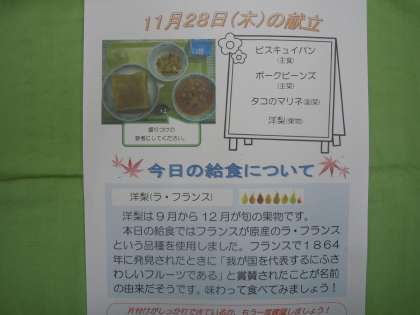 11月28日(木)の献立
ビスキュイパン
(主食)
ポークビーンズ
(主菜)
タコのマリネ(副菜)
洋梨(果物)
盛り付けの
参考にしてください。
今日の給食について
洋梨(ラ・フランス)
洋梨は9月から12月が旬の果物です。
本日の給食ではフランスが原産のラ・フランス
という品種を使用しました。フランスで1864
年に発見されたときに「我が国を代表するにふさ
わしいフルーツである」と賞賛されたことが名前
の由来だそうです。味わって食べてみましょう！
片付けがしっかりできているか、もう一度確認しましょう！